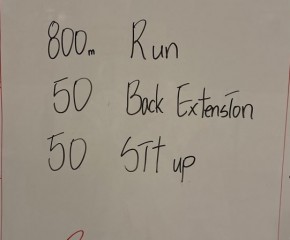 800m Run
50 Back Extension
50 SIt up